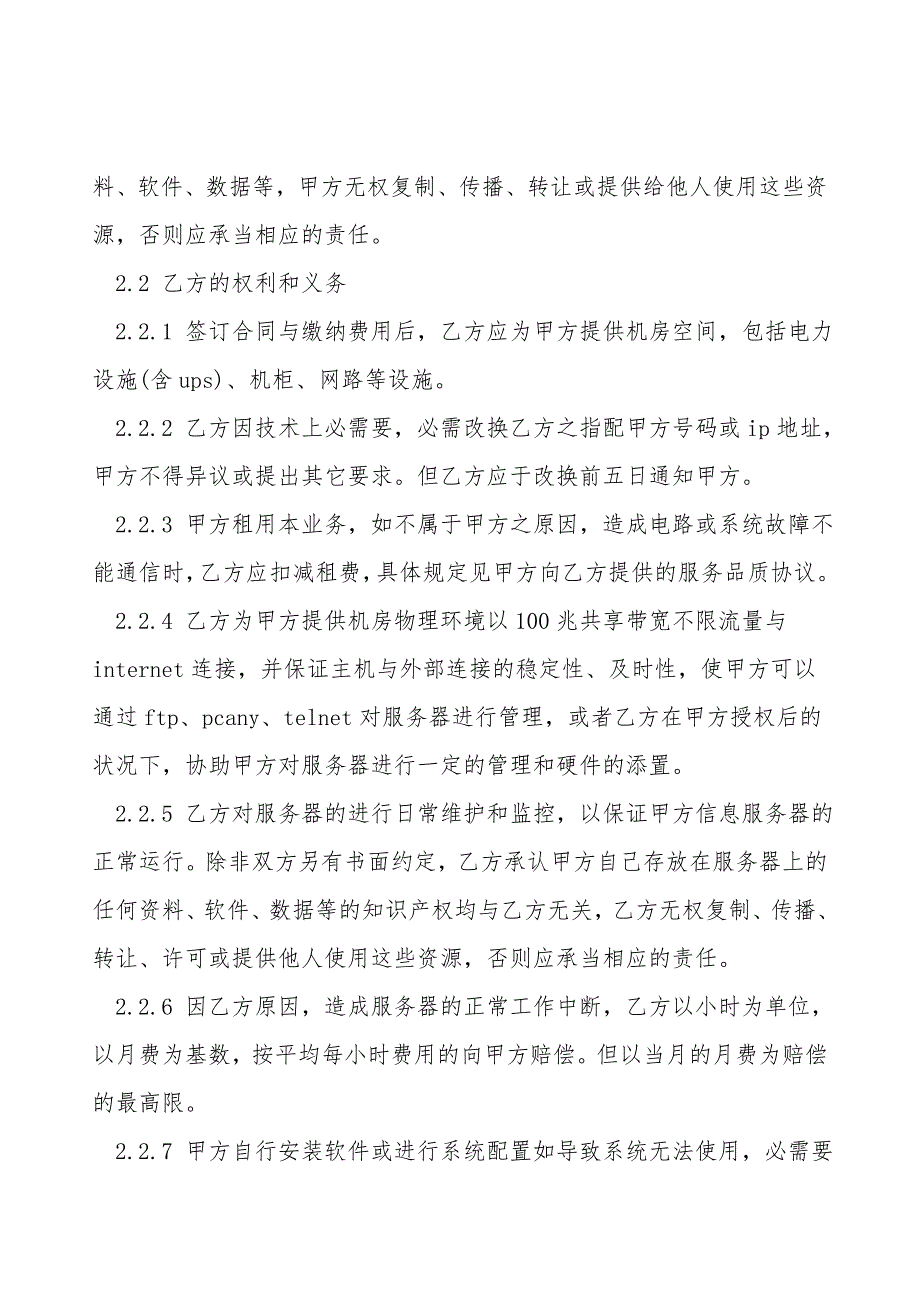 料、软件、数据等，甲方无权复制、传播、转让或提供给他人使用这些资
源，否则应承当相应的责任。
2.2 乙方的权利和义务
2.2.1 签订合同与缴纳费用后，乙方应为甲方提供机房空间，包括电力
设施(含ups)、机柜、网路等设施。
2.2.2 乙方因技术上必需要，必需改换乙方之指配甲方号码或ip地址，
甲方不得异议或提出其它要求。但乙方应于改换前五日通知甲方。
2.2.3 甲方租用本业务，如不属于甲方之原因，造成电路或系统故障不
能通信时，乙方应扣减租费，具体规定见甲方向乙方提供的服务品质协议。
2.2.4 乙方为甲方提供机房物理环境以100兆共享带宽不限流量与
internet连接，并保证主机与外部连接的稳定性、及时性，使甲方可以
通过ftp、pcany、telnet对服务器进行管理，或者乙方在甲方授权后的
状况下，协助甲方对服务器进行一定的管理和硬件的添置。
2.2.5 乙方对服务器的进行日常维护和监控，以保证甲方信息服务器的
正常运行。除非双方另有书面约定，乙方承认甲方自己存放在服务器上的
任何资料、软件、数据等的知识产权均与乙方无关，乙方无权复制、传播、
转让、许可或提供他人使用这些资源，否则应承当相应的责任。
2.2.6 因乙方原因，造成服务器的正常工作中断，乙方以小时为单位，
以月费为基数，按平均每小时费用的向甲方赔偿。但以当月的月费为赔偿
的最高限。
2.2.7 甲方自行安装软件或进行系统配置如导致系统无法使用，必需要